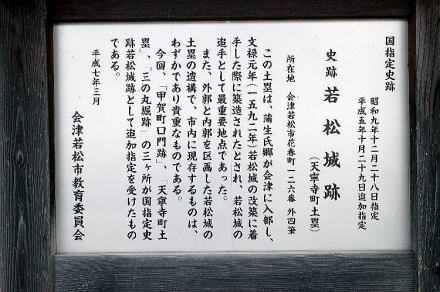 国指定史跡
昭和九年十二月二十八日指定
平成五年十月二十九日追加指定
史跡 若松城跡
(天寧寺町土塁)
所在地 会津若松市花春町一二六番 外四筆
この土塁は、蒲生氏郷が会津に入部し、
文禄元年(一五九二年)若松城の改築に着
手した際に築造されたとされ、若松城の
追手として最重要地点であった。
また、外郭と内郭を区画した若松城の
土塁の遺構で、市内に現存するものは、
わずかであり貴重なものである。
今回、「甲賀町口門跡」、「天寧寺町土
塁」、「三の丸堀跡」の三ヶ所が国指定史
跡若松城跡として追加指定を受けたもの
である。
平成七年三月
会津若松市教育委員会